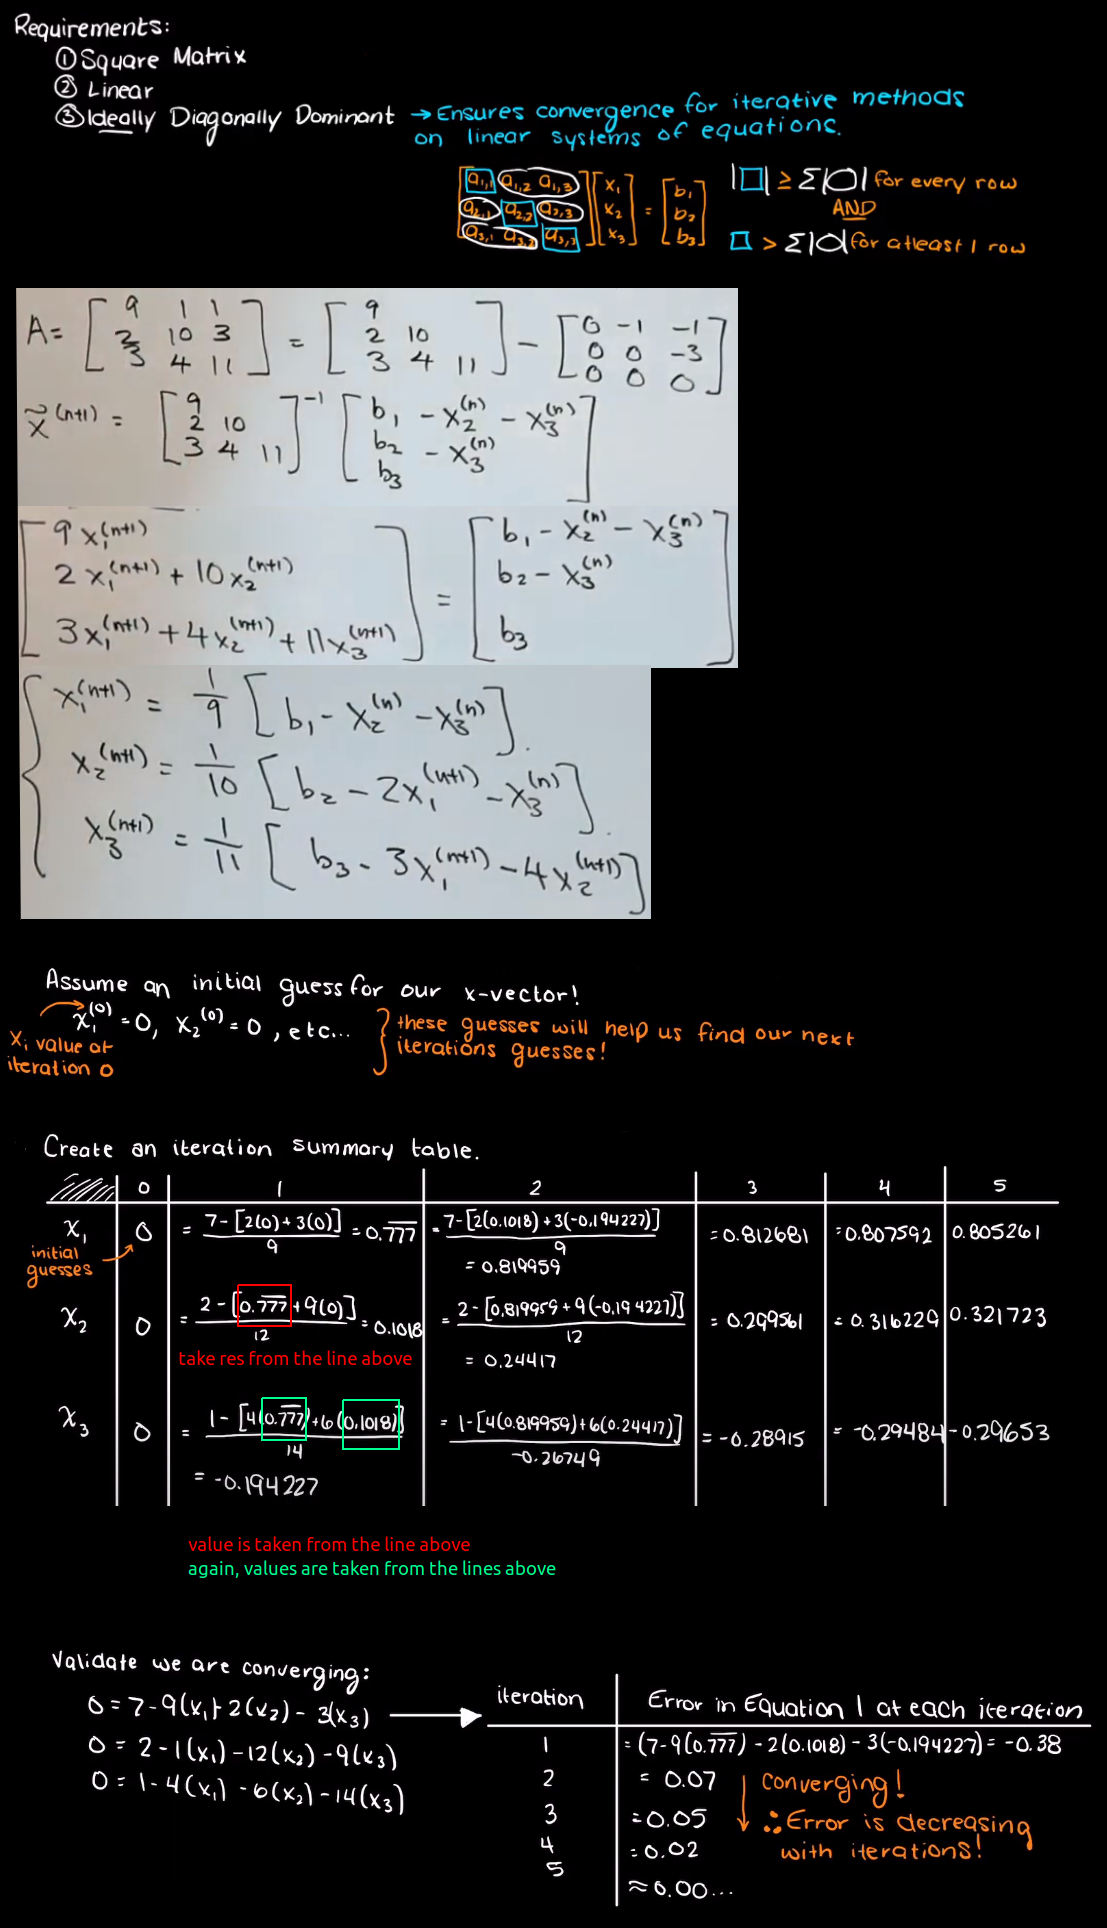 Requirements:
① Square Matrix
② Linear
③ Ideally Diagonally Dominant → Ensures convergence for iterative methods
on linear systems of equations.
[a1,1 a1,2 a1,3] [x1] [b1] |□| ≥ Σ|O| for every row
[a2,1 a2,2 a2,3] [x2] = [b2] AND
[a3,1 a3,2 a3,3] [x3] [b3] □ > Σ|O| for atleast 1 row
A = [9 1 1; 2 10 3; 3 4 11] = [9; 2 10; 3 4 11] - [0 -1 -1; 0 0 -3; 0 0 0]
x̃^(n+1) = [9; 2 10; 3 4 11]^-1 [b1 - x2^(n) - x3^(n); b2 - x3^(n); b3]
[9x1^(n+1)] [b1 - x2^(n) - x3^(n)]
[2x1^(n+1) + 10x2^(n+1)] = [b2 - x3^(n)]
[3x1^(n+1) + 4x2^(n+1) + 11x3^(n+1)] [b3]
x1^(n+1) = 1/9 [b1 - x2^(n) - x3^(n)].
x2^(n+1) = 1/10 [b2 - 2x1^(n+1) - x3^(n)].
x3^(n+1) = 1/11 [b3 - 3x1^(n+1) - 4x2^(n+1)]
Assume an initial guess for our x-vector!
x1^(0) = 0, x2^(0) = 0, etc... } these guesses will help us find our next
iterations guesses!
x1 value at
iteration 0
Create an iteration summary table.
0 1 2 3 4 5
x1 0 = 7-[2(0)+3(0)]/9 = 0.777 = 7-[2(0.1018)+3(-0.194227)]/9 = 0.819959 = 0.812681 = 0.807592 0.805261
initial
guesses
x2 0 = 2-[0.777+9(0)]/12 = 0.1018 = 2-[0.819959+9(-0.194227)]/12 = 0.24417 = 0.299561 = 0.316229 0.321723
take res from the line above
x3 0 = 1-[4(0.777)+6(0.1018)]/14 = -0.194227 = 1-[4(0.819959)+6(0.24417)]/-0.26749 = -0.28915 = -0.29484 -0.29653
value is taken from the line above
again, values are taken from the lines above
Validate we are converging:
0 = 7-9(x1)+2(x2)-3(x3)
0 = 2-1(x1)-12(x2)-9(x3)
0 = 1-4(x1)-6(x2)-14(x3)
iteration Error in Equation 1 at each iteration
1 = (7-9(0.777)-2(0.1018)-3(-0.194227) = -0.38
2 = 0.07
3 = 0.05
4 = 0.02
5 ≈ 0.00...
converging!
∴ Error is decreasing
with iterations!